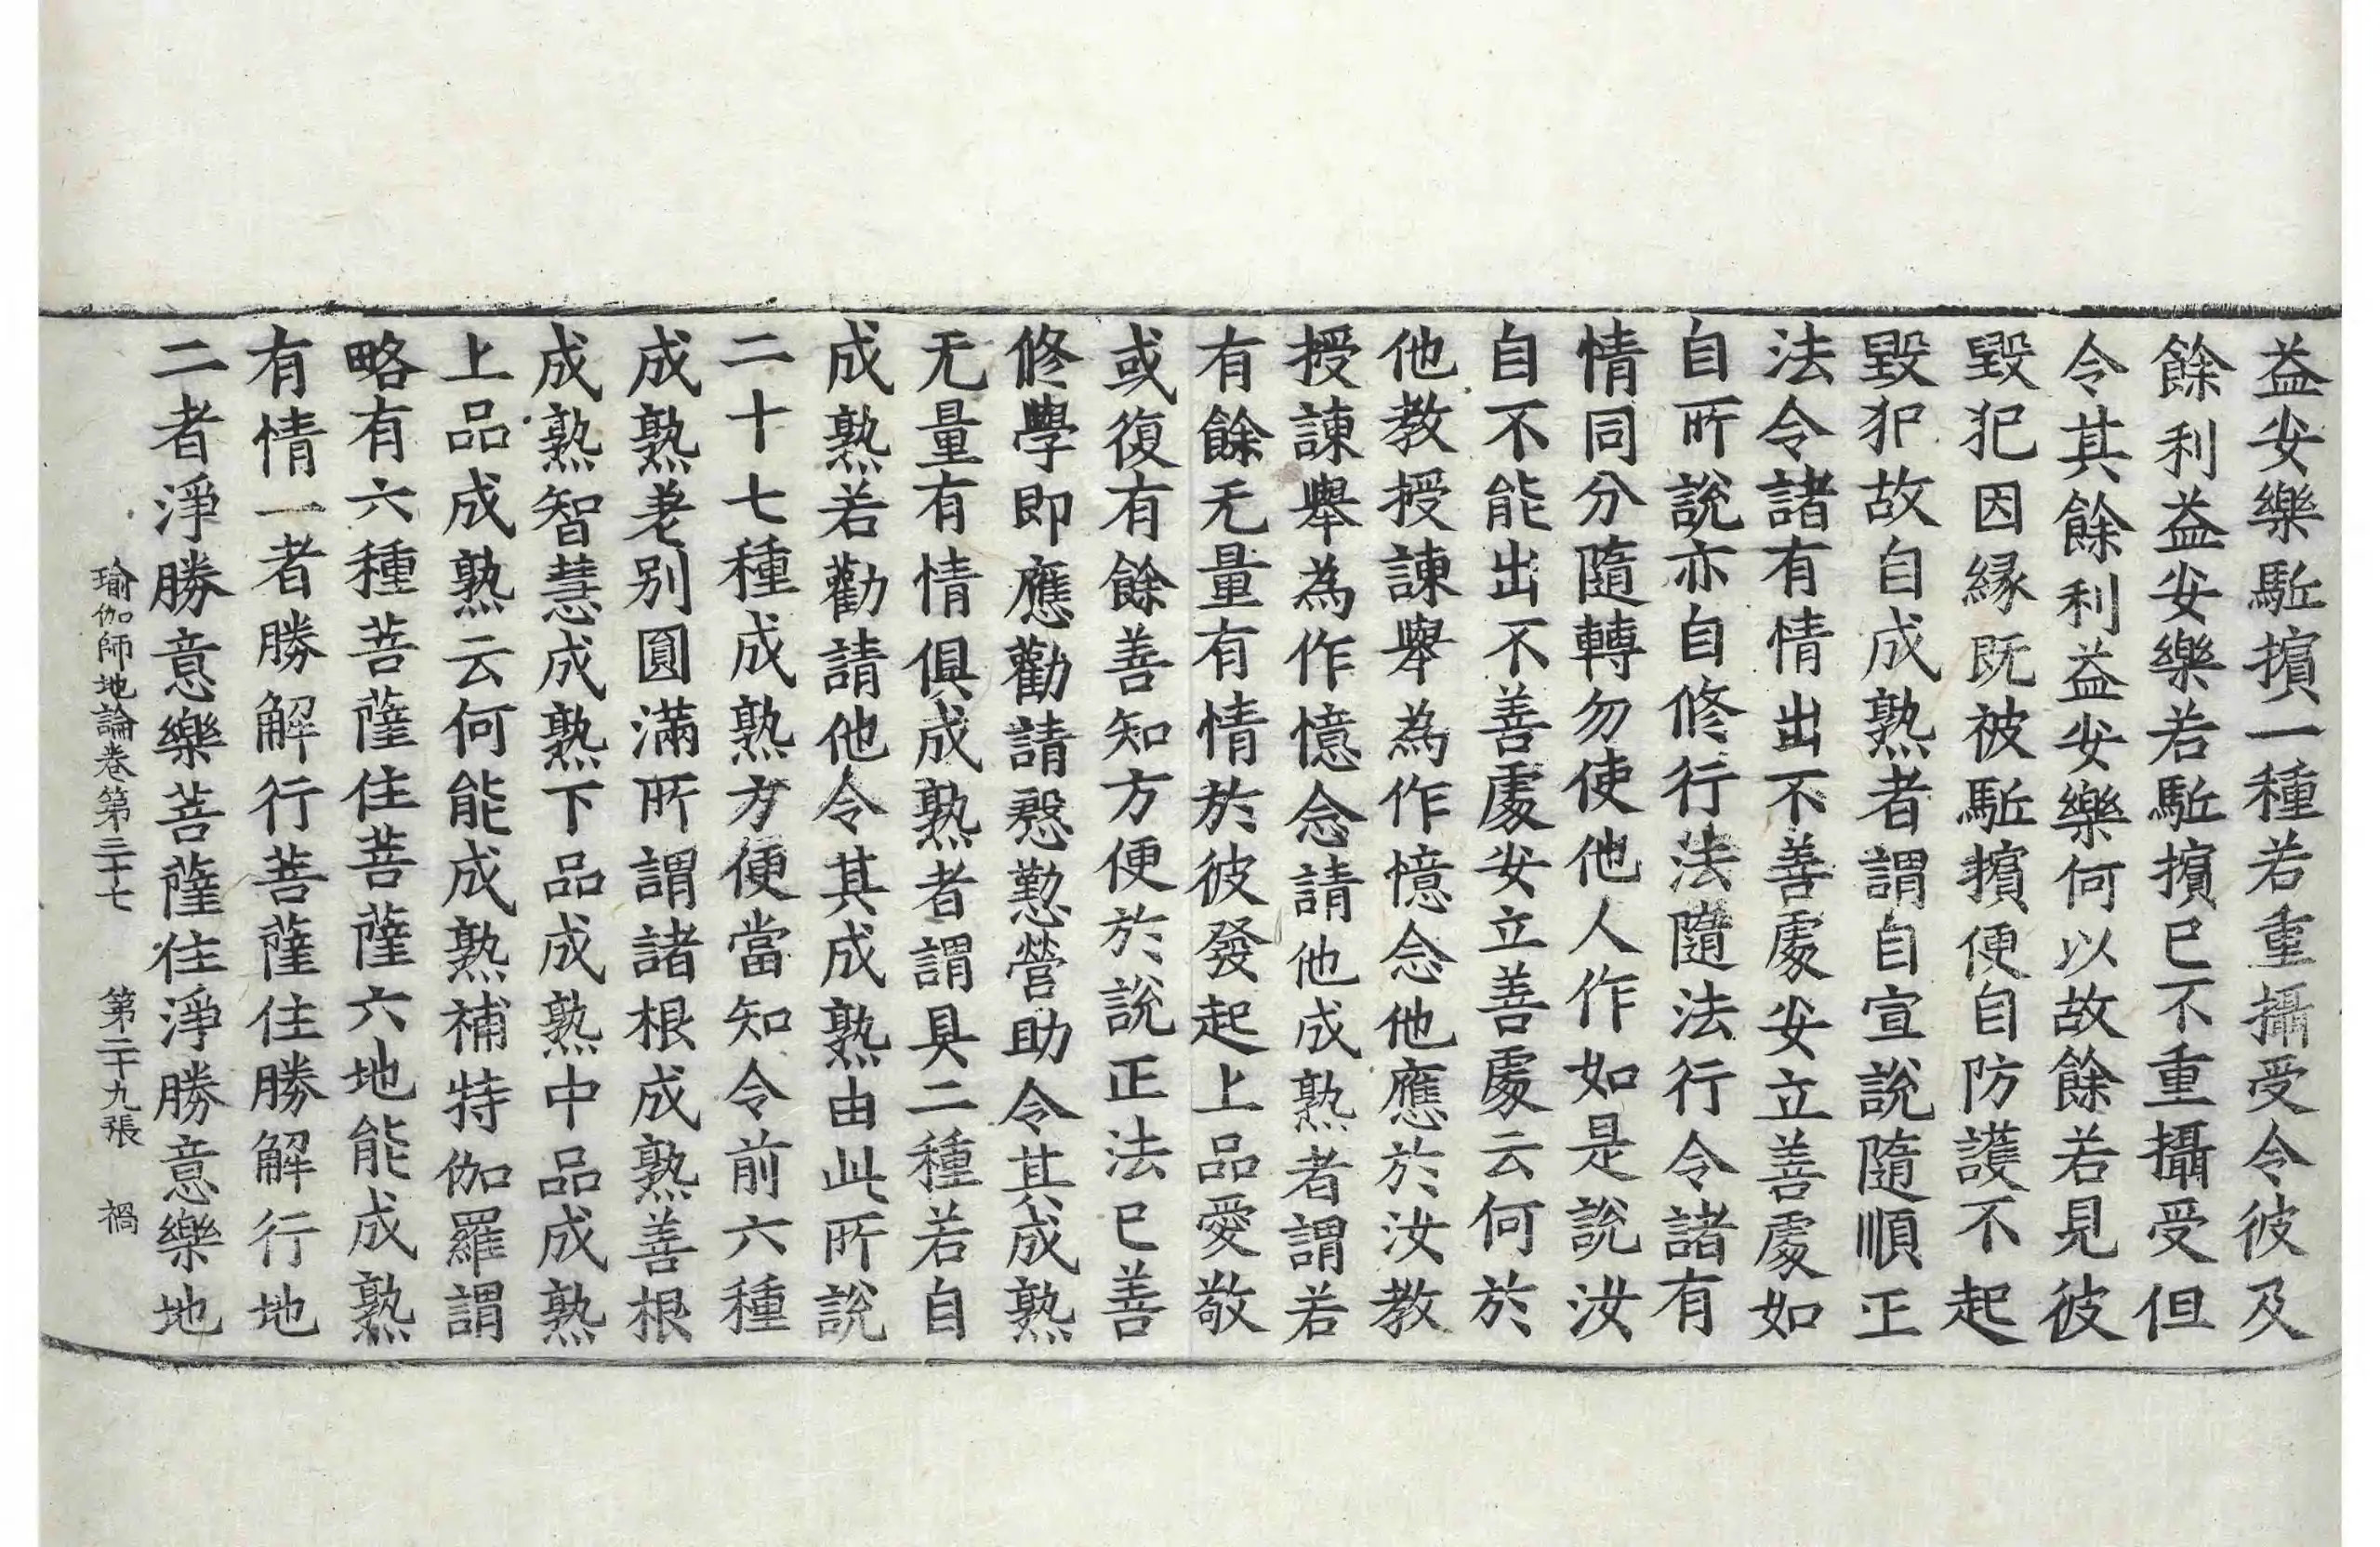 益安樂駈擯一種若重攝受令彼及
餘利益安樂若駈擯已不重攝受但
令其餘利益安樂何以故餘若見彼
毀犯因緣既被駈擯便自防護不起
毀犯故自成熟者謂自宣說隨順正
法令諸有情出不善處安立善處如
自所說亦自修行法隨法行令諸有
情同分隨轉勿使他人作如是說汝
自不能出不善處安立善處云何於
他教授諫舉為作憶念他應於汝教
授諫舉為作憶念請他成熟者謂若
有餘无量有情於彼發起上品愛敬
或復有餘善知方便於說正法已善
修學即應勸請慇懃營助令其成熟
无量有情俱成熟者謂具二種若自
成熟若勸請他令其成熟由此所說
二十七種成熟方便當知令前六種
成熟差別圓滿所謂諸根成熟善根
成熟智慧成熟下品成熟中品成熟
上品成熟云何能成熟補特伽羅謂
略有六種菩薩住菩薩六地能成熟
有情一者勝解行菩薩住勝解行地
二者淨勝意樂菩薩住淨勝意樂地
瑜伽師地論卷第三十七 第二十九張 禍